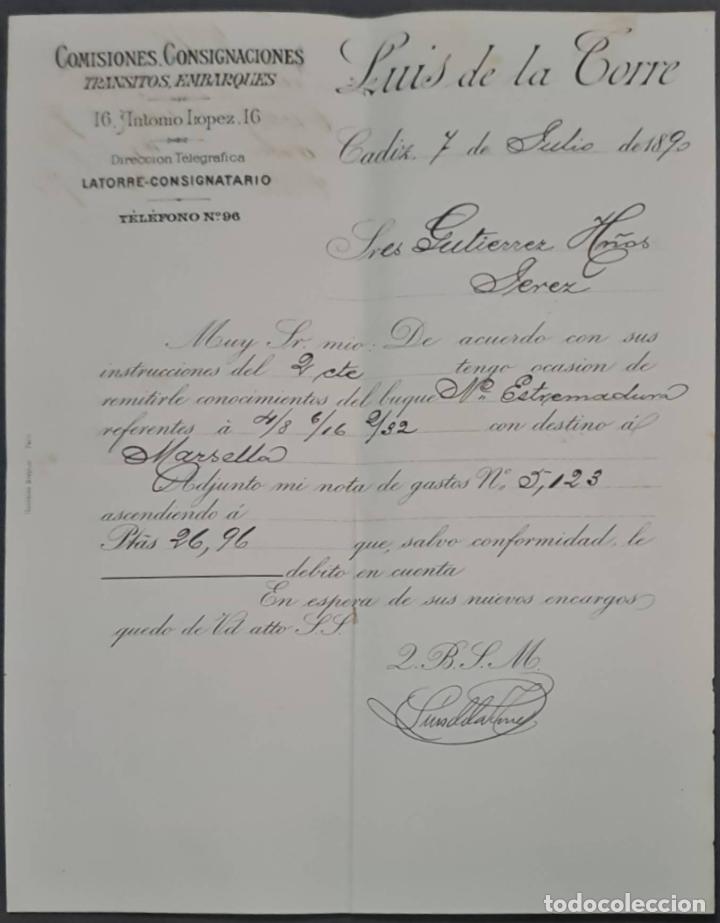 COMISIONES, CONSIGNACIONES
TRANSITOS, EMBARQUES
16, Antonio Lopez, 16
Direccion Telegrafica
LATORRE-CONSIGNATARIO
TÉLÉFONO Nº 96
Luis de la Torre
Cadiz, 7 de Julio de 1890
Sres Gutierrez Hños
Jerez
Muy Sr. mio: De acuerdo con sus
instrucciones del 2 cte tengo ocasion de
remitirle conocimientos del buque Nª Estremadura
referentes à 4/8 6/16 2/32 con destino á
Marsella
Adjunto mi nota de gastos Nº 5,123
ascendiendo á
Ptas 26,96 que, salvo conformidad, le
debito en cuenta
En espera de sus nuevos encargos
quedo de Vd atto S.S.
Q.B.S.M.
Luis de la Torre
todocoleccion
todocoleccion.net